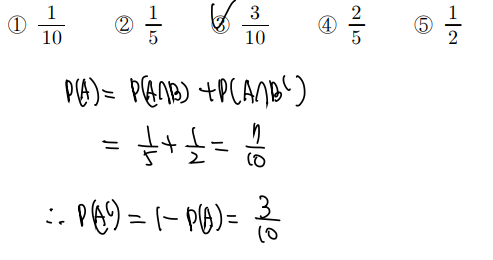 ① 1/10 ② 1/5 ③ 3/10 ④ 2/5 ⑤ 1/2
P(A) = P(A∩B) + P(A∩Bᶜ)
= 1/5 + 1/2 = 7/10
∴ P(Aᶜ) = 1 - P(A) = 3/10